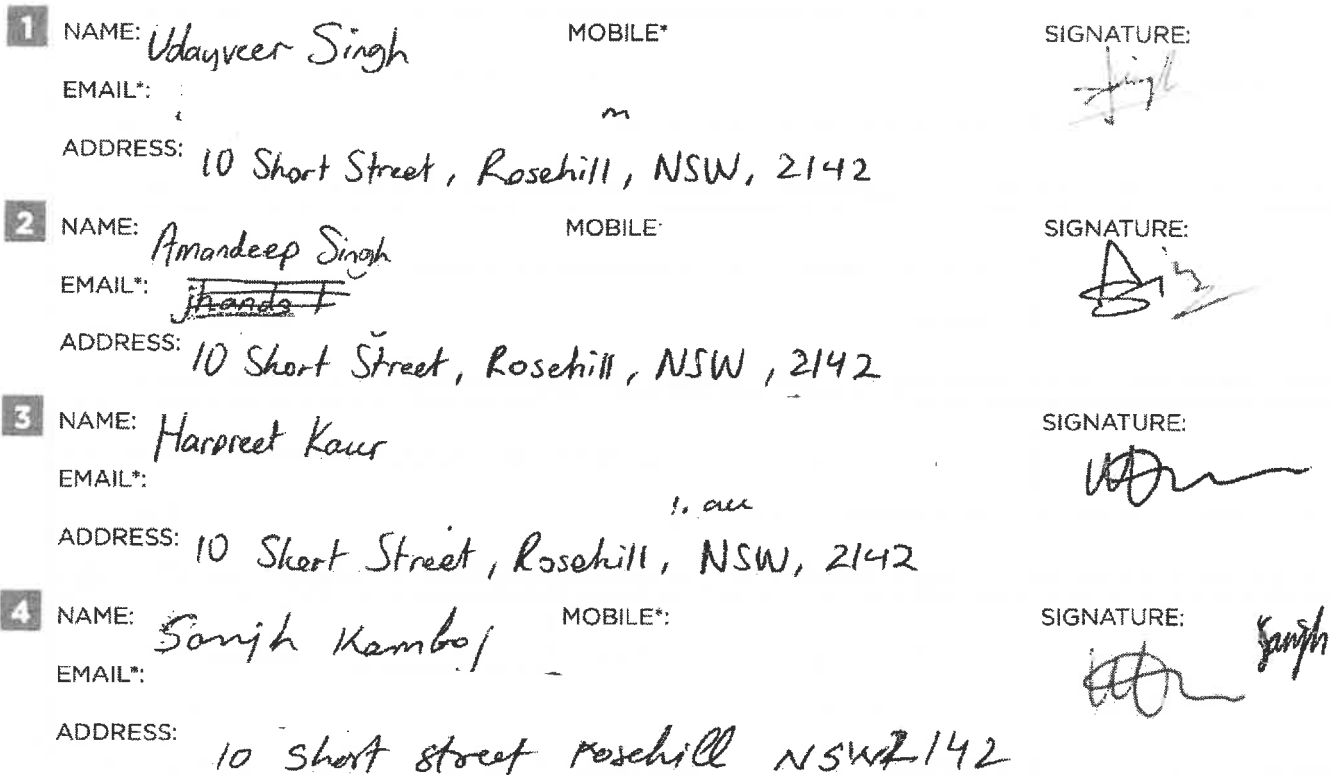 1 NAME: Udayveer Singh MOBILE* SIGNATURE:
EMAIL*:
ADDRESS: 10 Short Street, Rosehill, NSW, 2142
2 NAME: Amandeep Singh MOBILE SIGNATURE:
EMAIL*:
ADDRESS: 10 Short Street, Rosehill, NSW, 2142
3 NAME: Harpreet Kaur SIGNATURE:
EMAIL*:
ADDRESS: 10 Short Street, Rosehill, NSW, 2142
4 NAME: Sanjh Kamboj MOBILE*: SIGNATURE: Sanjh
EMAIL*:
ADDRESS: 10 Short street Rosehill NSW 2142